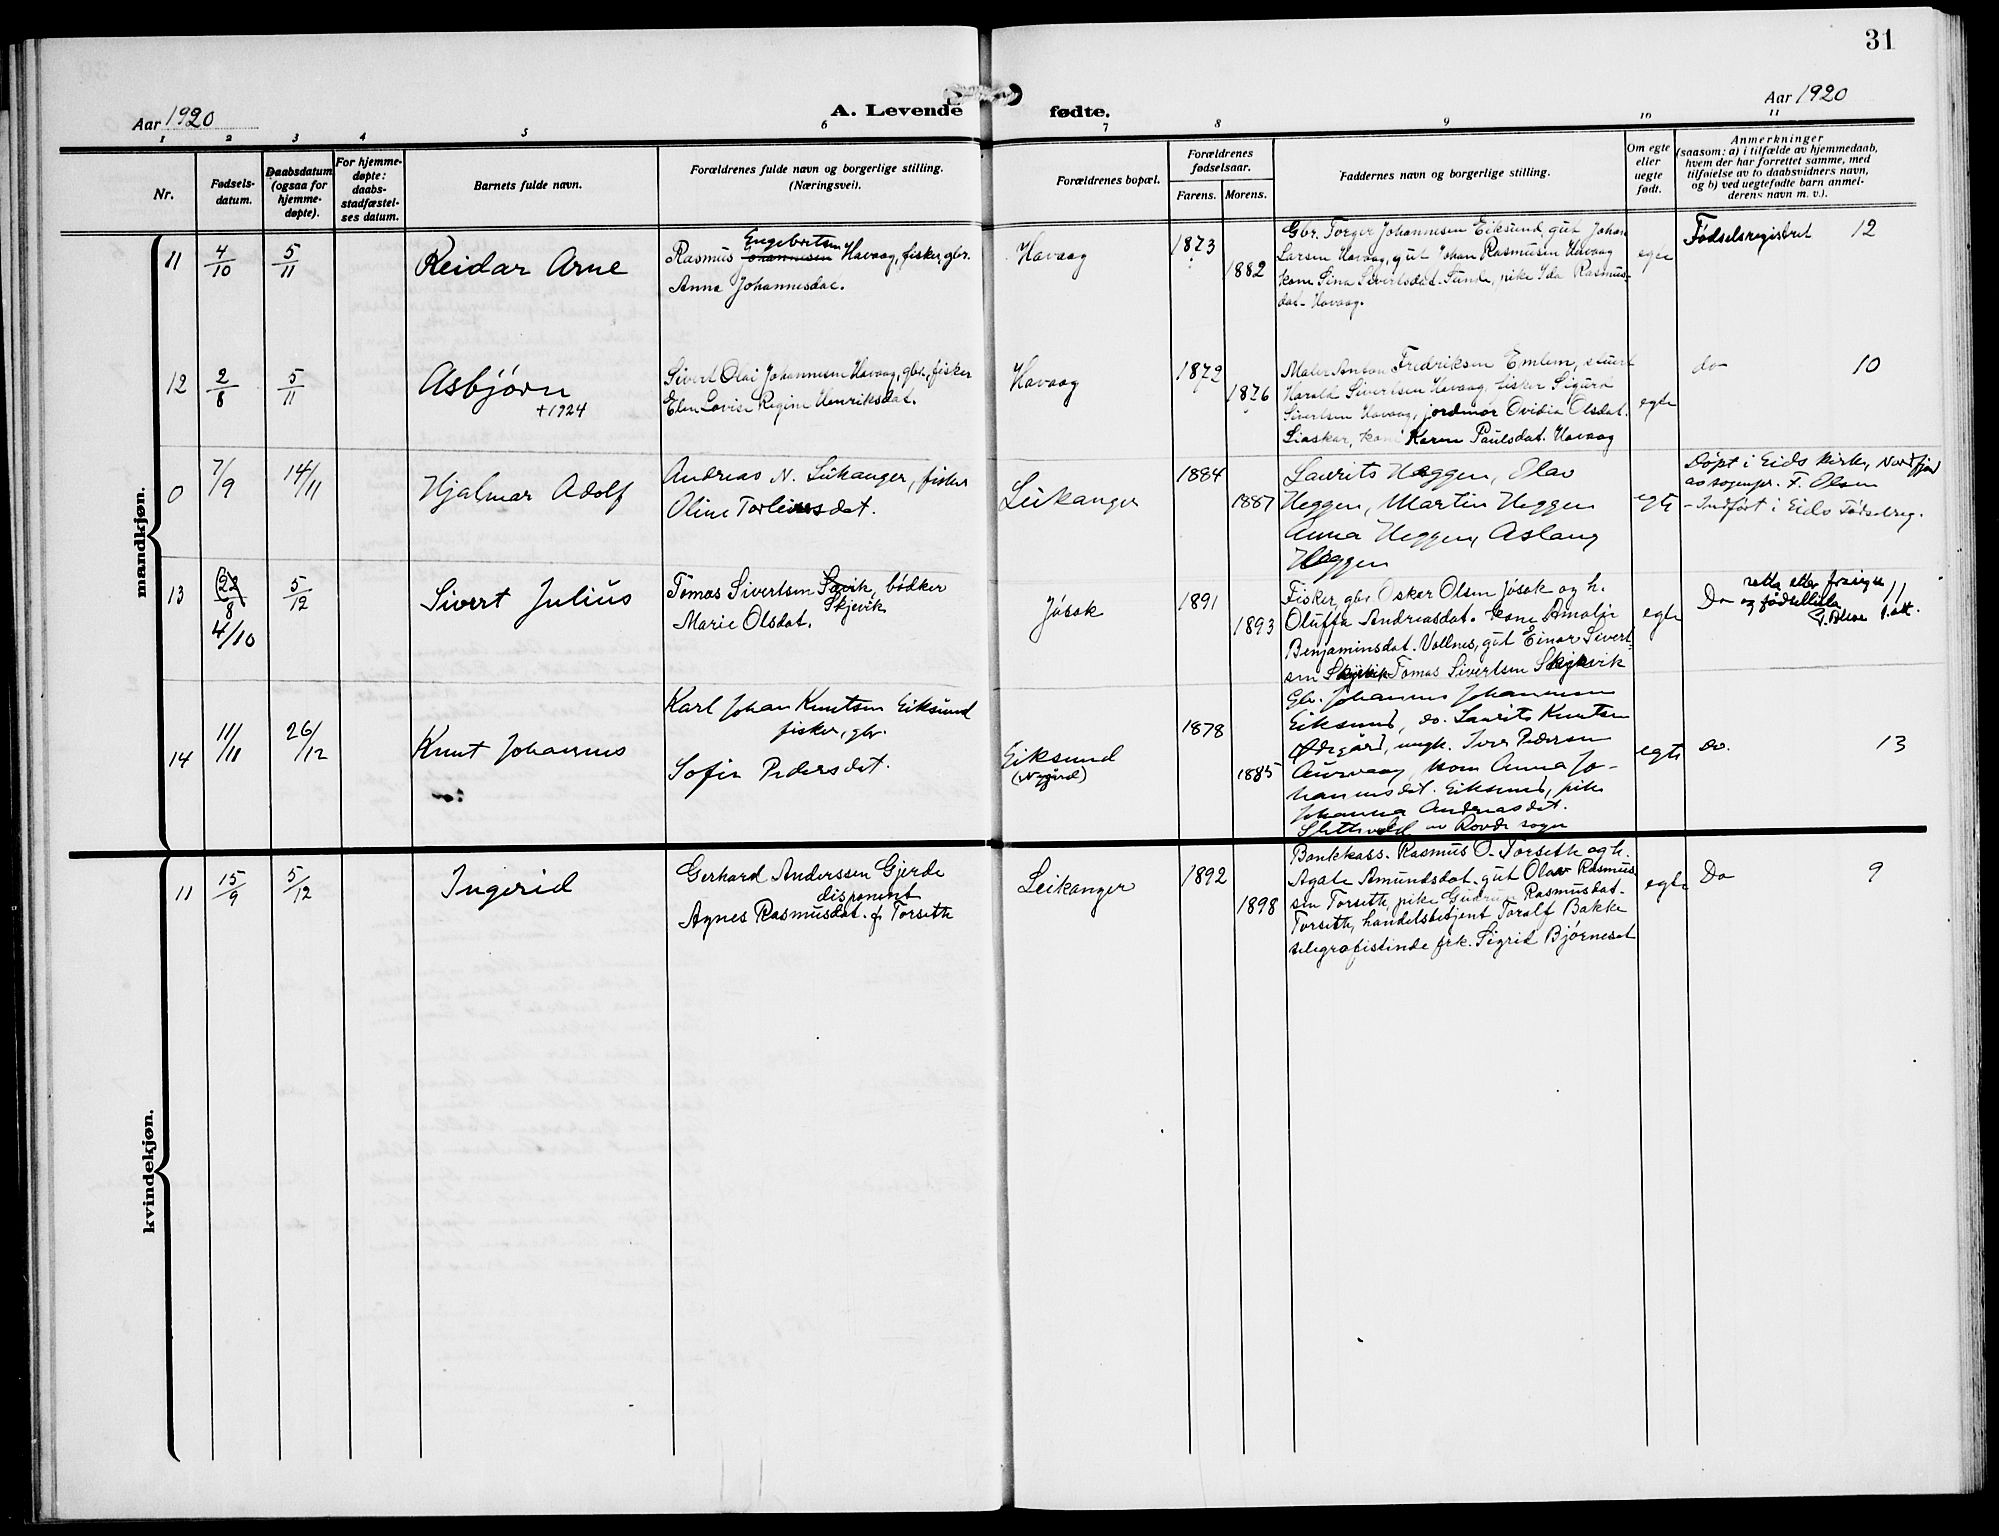 31
Aar 1920
A. Levende fødte.
Aar 1920
1 2 3 4 5 6 7 8 9 10 11
Nr.
Fødsels-
datum.
Daabsdatum
(ogsaa for
hjemme-
døpte).
For hjemme-
døpte:
daabs-
stadfæstel-
ses datum.
Barnets fulde navn.
Forældrenes fulde navn og borgerlige stilling.
(Næringsvei).
Forældrenes bopæl.
Forældrenes
fødselsaar.
Farens. Morens.
Faddernes navn og borgerlige stilling.
Om egte
eller
uegte
født.
Anmerkninger
(saasom: a) i tilfælde av hjemmedaab,
hvem der har forrettet samme, med
tilføielse av to daabsvidners navn,
og b) ved uegtefødte barn anmel-
derens navn m. v.).
mandkjøn.
11
4/10
5/11
Reidar Arne
Engebretsen
Rasmus Johannesen Havaag, fisker, gbr.
Anna Johannesdat.
Havaag
1873
1882
Gbr. Torger Johannesen Eiksund, gut Johan
Larsen Havaag, gut Johan Rasmusen Havaag
kone Sina Sivertsdat. Funke, pike Ida Rasmus-
dat. Havaag.
egte
Fødselsregistret 12
12
2/8
5/11
Asbjørn
+1924
Sivert Olai Johannesen Havaag, gbr., fisker
Elen Lovise Regine Henriksdat.
Havaag
1872
1876
Maler Anton Fredriksen Emlem, stuert
Harald Sivertsen Havaag, fisker Sigurd
Sivertsen Havaag, jordmor Ovidia Olsdat.
Liaskar, kone Karen Paulsdat. Havaag
egte
do 10
0
7/9
14/11
Hjalmar Adolf
Andreas N. Leikanger, fisker
Oline Torleivsdat.
Leikanger
1884
1887
Laurits Heggen, Olav
Heggen, Martin Heggen
Anna Heggen, Aslaug
Heggen
egte
Døpt i Eids kirke, Nordfjord
av sogenpr. F. Olsen
- Indført i Eids Fødselreg.
13
22/8
4/10
5/12
Sivert Julius
Tomas Sivertsen Sævik, bødker
Skjevik
Marie Olsdat.
Jøsok
1891
1893
Fisker, gbr Oskar Olsen Jøsok og h.
Oluffa Andreasdat. kone Amalie
Benjaminsdat. Vollnes, gut Einar Sivert-
sen Skjevik Tomas Sivertsen Skjevik
egte
Do 11
og fødsellista
14
11/11
26/12
Knut Johannes
Karl Johan Knutsen Eiksund
fisker, gbr.
Sofie Pedersdat.
Eiksund
(Nygård)
1878
1885
Gbr. Johannes Johannesen
Eiksund, do. Laurits Knutsen
Ødegård, ungk. Iver Pedersen
Aurvaag, kone Anna Jo-
hannesdat. Eiksund, pike
Johanna Andreasdat.
Slettevold av Rovde sogn
egte
do. 13
kvindekjøn.
11
15/9
5/12
Ingerid
Gerhard Anderssen Gjerde
disponent
Agnes Rasmusdat. f. Torseth
Leikanger
1892
1898
Bankkass. Rasmus O. Torseth og h.
Agate Amundsdat. gut Olav Rasmus
sen Torseth, pike Gudrun Rasmusdat.
Torseth, handelsbetjent Toralf Bakke
telegrafistinde frk. Sigrid Bjørneset
egte
Do 9